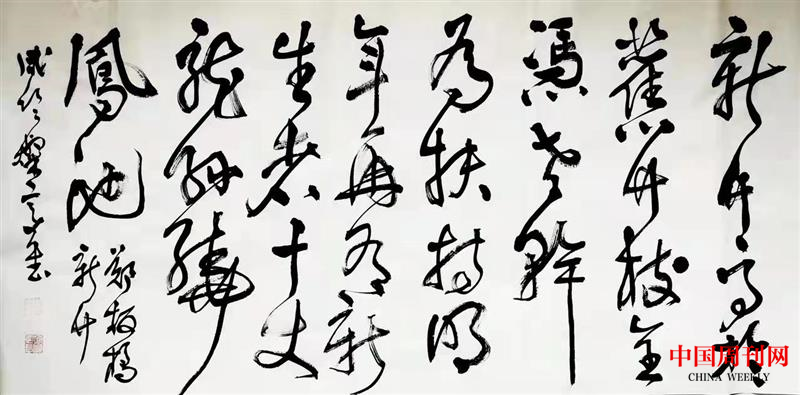 新竹高於
舊竹枝全
憑老幹
為扶持明
年再有新
生者十丈
龍孫繞
鳳池
鄭板橋
新竹
中国周刊网
CHINA WEEKLY